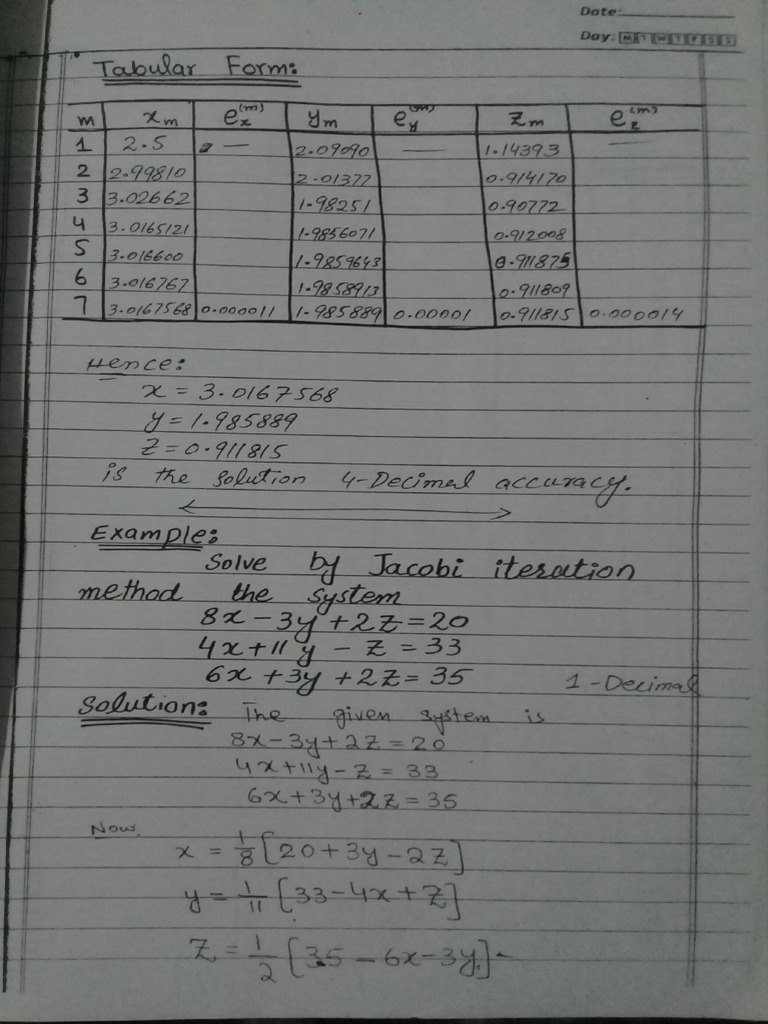 Date:
Day: M T W T F S S
Tabular Form:
m xₘ eₓ⁽ᵐ⁾ yₘ e_y⁽ᵐ⁾ zₘ e_z⁽ᵐ⁾
1 2.5 — 2.09090 — 1.14393 —
2 2.99810 2.01377 0.914170
3 3.02662 1.98251 0.90772
4 3.0165121 1.9856071 0.912008
5 3.016600 1.9859643 0.911875
6 3.016767 1.9858913 0.911809
7 3.0167568 0.000011 1.985889 0.00001 0.911815 0.000014
Hence:
x = 3.0167568
y = 1.985889
z = 0.911815
is the solution 4-Decimal accuracy.
Example:
Solve by Jacobi iteration
method the system
8x - 3y + 2z = 20
4x + 11y - z = 33
6x + 3y + 2z = 35 1-Decimal
Solution: The given system is
8x - 3y + 2z = 20
4x + 11y - z = 33
6x + 3y + 2z = 35
Now
x = 1/8 [20 + 3y - 2z]
y = 1/11 [33 - 4x + z]
z = 1/2 [35 - 6x - 3y]